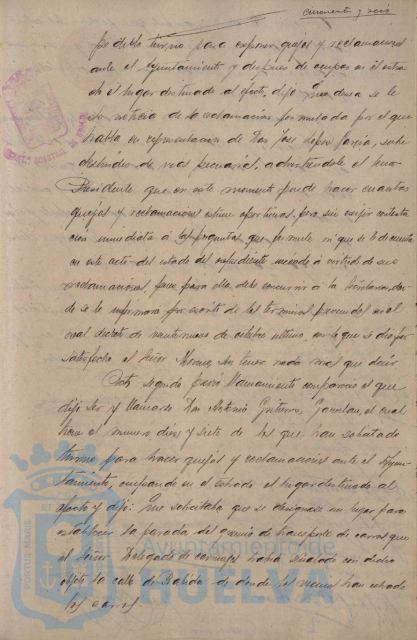 cincuenta y seis
pe de la turno para exponer quejas y reclamaciones
ante el Ayuntamiento y despues de ocupar en el estra
do el lugar destinado al efecto, dijo: Que desea se le
de noticia de la reclamacion formulada por el que
habla en representacion de Don José López García, sobre
deslindes de vias pecuarias, advirtiendole el Señor
Presidente que en este momento puede hacer cuantas
quejas y reclamaciones estime oportunas, pero sin exigir contesta
cion inmediata á las preguntas que formule ni que se le de cuenta
en este acto del estado del expediente incoado á virtud de sus
reclamaciones, pues para ello, debe concurrir á la Secretaria, don
de se le informará por escrito de los terminos prevenidos en el
Real decreto de veintinueve de octubre ultimo, con lo que se dio por
satisfecho el Señor sin tener nada mas que decir
segundo llamamiento comparecio el que
dijo ser y llamarse Don Antonio Gutierrez el cual
hace el numero diez y siete de los que han solicitado
turno para hacer quejas y reclamaciones ante el Ayun-
tamiento, ocupando en el estrado el lugar destinado al
efecto y dijo: Que solicitaba que se designase un lugar para
establecer la parada del gremio de transporte de carros que
el Señor Delegado de carruajes habia señalado con dicho
objeto la calle de de donde los vecinos han echado
los carros
Ayuntamiento de
HUELVA
PORTUS MARIS